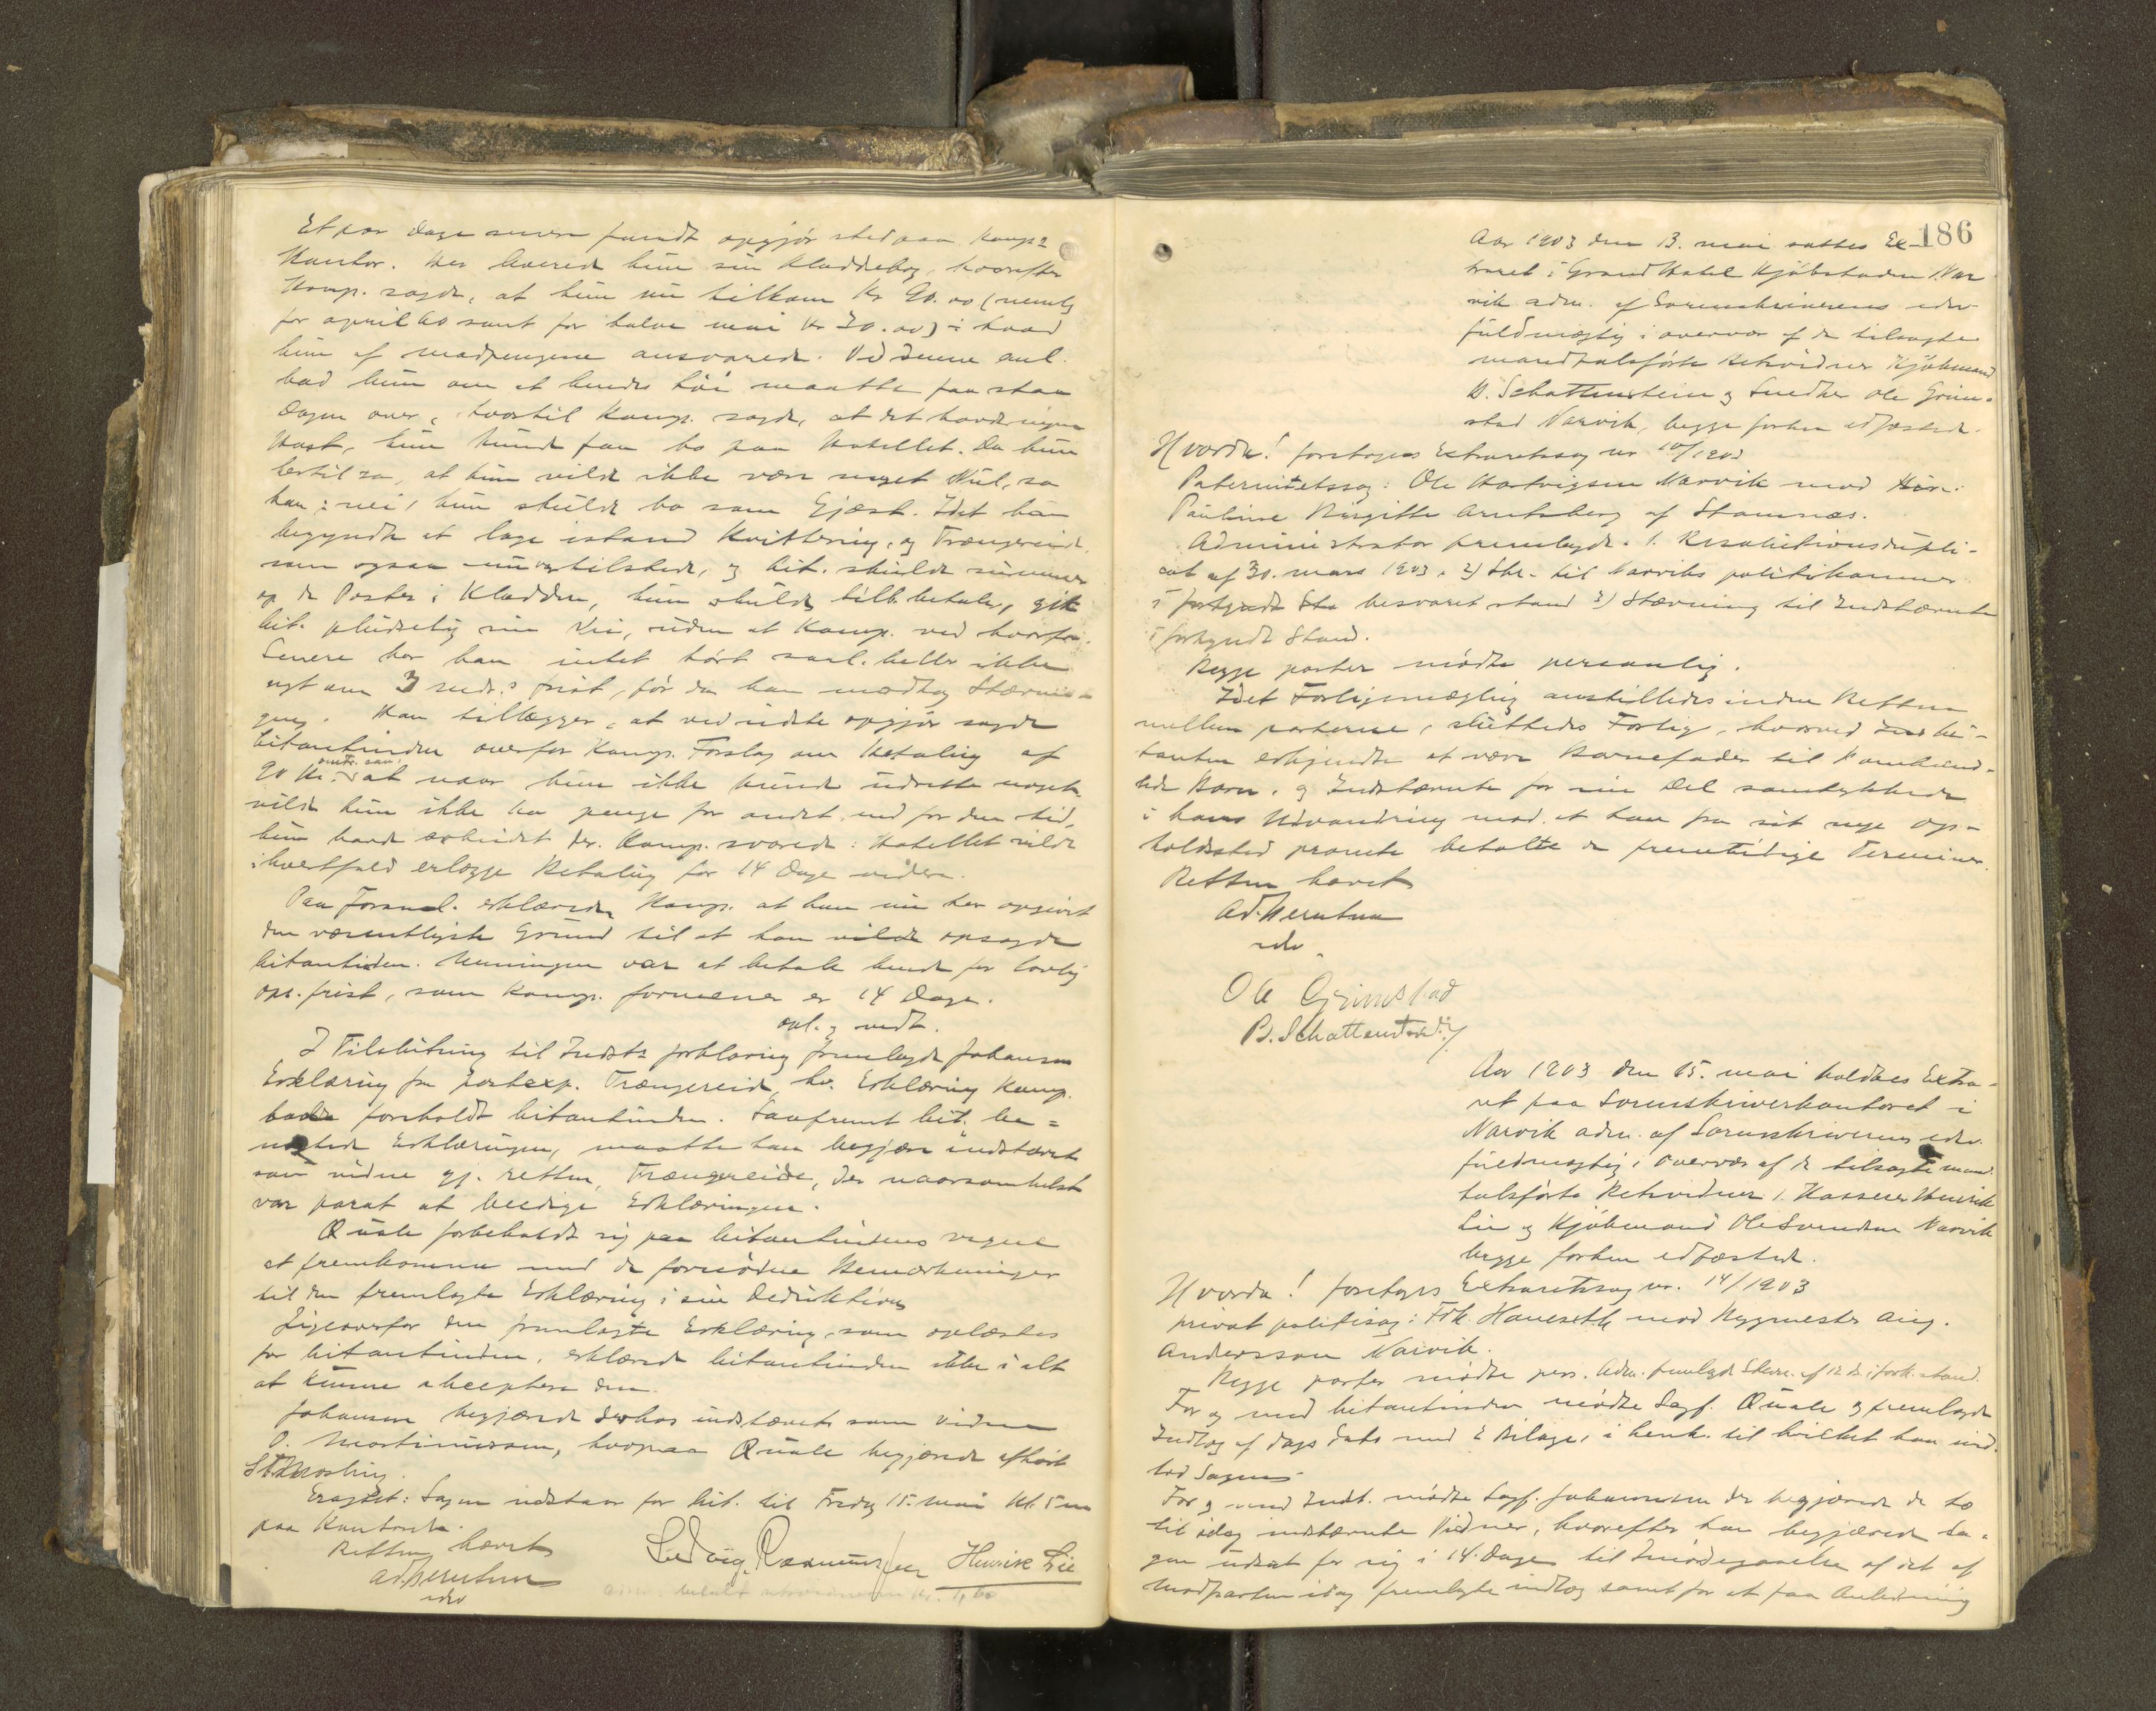 Et par Dage senere fandt opgjør sted paa Komp.s
Kontor. Her leverede hun sin Kladdebog, hvorefter
Komp. sagde, at hun nu tilkom Kr 90.00 (nemlig
for april 60 samt for halve mai Kr 30.00) i hvad
hun af madpengene ansvarede. Ved denne anl.
bad hun om at hendes tøi maatte faa staa
Dagen over, hvortil Komp. sagde, at det havde ingen
Hast, hun kunde faa bo paa Hotellet. Da hun
hertil sa, at hun vilde ikke være noget Hul, sa
han: nei, hun skulde bo som Gjæst. Idet han
begyndte at lage istand Kvittering, og Trængereid,
som ogsaa var tilstede, og Cit. skulde summere
op de Poster i Kladden, hun skulde tilb. betale, gik
Cit. pludselig sin Vei, uden at Komp. ved hvorfor.
Senere har han intet hørt saal. heller ikke
nyt om 3 mdr.s frist, før da han modtog Stævnin-
gen. Han tillægger, at ved sidste opgjør sagde
Citantinden overfor Komp. Forslag om Betaling af
90 Kr. at naar hun ikke kunde udrette noget,
vilde hun ikke ha penge for andet, end for den tid,
hun havde arbeidet der. Komp. svarede: Hotellet vilde
ihvertfald erlægge Betaling for 14 Dage videre.
Paa Foranl. erklærede Komp. at han nu har opgivet
den væsentligste Grund til at han opsagde
Citantinden. Meningen var at betale hende for lovlig
ops. frist, som Komp. formener er 14 Dage.
opl. og vedt.
I Tilslutning til Indsts forklaring fremlagde Johansen
Erklæring fra postexp. Trængereid, hv. Erklæring Komp.
havde foreholdt Citantinden. Saafremt Cit. be=
nægtede Erklæringen, maatte han begjære indstævnt
som vidne gj. retten, Trængereide, der naarsomhelst
var parat at beedige Erklæringen.
Quale forbeholdt sig paa Citantindens vegne
at fremkomme med de fornødne Bemærkninger
til den fremlagte Erklæring i sin Deduktion
Ligeoverfor den fremlagte Erklæring, som oplæstes
for Citantinden, erklærede Citantinden ikke i alt
at kunne akceptere den.
Johansen begjærede derhos indstævnt som vidne
O. Mortinussen, hvorpaa Quale begjærede afhørt
Eragtet: Sagen udstaar for Cit. til Fredag 15. mai Kl. 5 em
paa Kontoret.
Retten hævet
Ad. Berntsen
edv
Ludvig Rasmussen Henrik Lie
adm. betalt retsvidnerne Kr.
186
Aar 1903 den 13. mai sattes Ex-
traret i Grand Hotel Kjøbstaden Nar
vik adm. af Sorenskriverens edsv.
fuldmægtig i overvær af de tilsagte
mandtalsførte Retsvidner Kjøbmand
B. Schattenstein og Snedker Ole Grim-
stad Narvik, begge forhen edfæstede.
Hvorda! foretoges Extraretssag nr 10/1903
Paternitetssag: Ole Hartvigsen Narvik mod
Pauline Birgitte Arntsberg af Stamnæs.
Administrator fremlagde. 1. Resolutionsdupli-
cat af 30. mars 1903, 2) Skr. til Narviks politikammer
i besvaret stand 3) Stævning til Indstævnte
i forkyndt Stand.
Begge parter mødte personlig.
Idet Forligsmægling anstilledes inden Retten
mellem parterne, sluttedes Forlig, hvorved Ci-
tanten erkjendte at være Barnefader til
Barn, og Indstævnte for sin Del samtykkede
i hans Udvandring mod. at han fra sit nye op-
holdssted promte betalte de fremtidige Terminer.
Retten hævet
Ad. Berntsen
edv.
Ole Grimstad
B. Schattenstein
Aar 1903 den 15. mai holdtes Extra-
ret paa Sorenskriverkontoret i
Narvik adm. af Sorenskriverens edsv.
fuldmægtig i Overvær af de tilsagte mand-
talsførte Retsvidner 1. Kasserer Henrik
Lie og Kjøbmand Ole Svendsen Narvik
begge forhen edfæstede.
Hvorda! foretoges Extraretssag nr. 14/1903
privat politisag: Frk. Haueseth mod Bygmester Aug.
Andersson Narvik.
Begge parter mødte pers. Adm. fremlagde Stevn. af 12 ds. i fork. stand.
For og med Citantinden mødte Sagf. Quale og fremlagde
Indlæg af dags dato med 2 Bilage, i henh. til hvilket han ind-
lod Sagen.
For og med Indst. mødte Sagf. Johannesen der begjærede de to
til idag indstævnte Vidner, hvorefter han begjærede Sa-
gen udsat for sig i 14. Dage til Imødegaaelse af det af
Modparten idag fremlagte indlæg samt for at faa Anledning